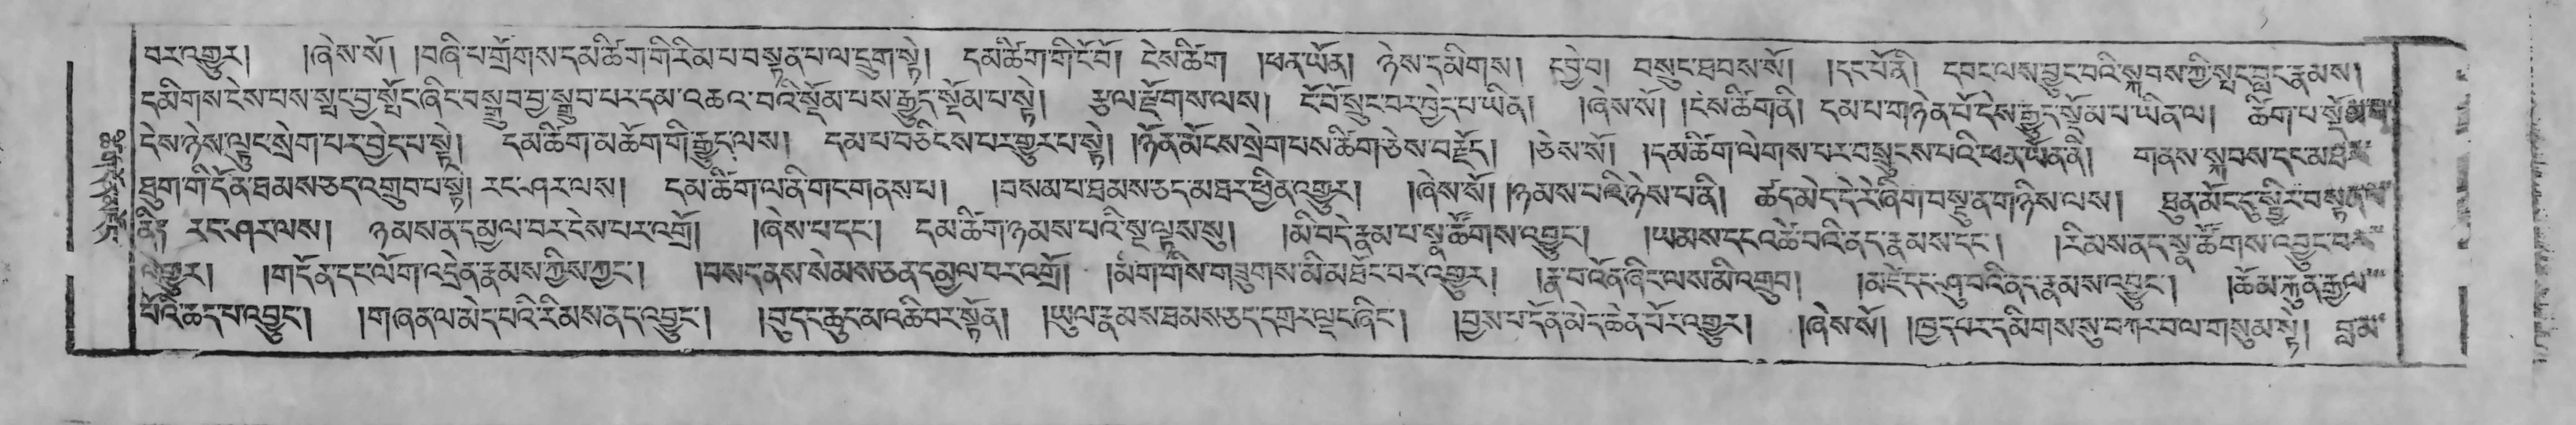 བར་འགྱུར། །ཞེས་སོ། །བཞི་པ་གྲོགས་དམ་ཚིག་གི་རིམ་པ་བསྟན་པ་ལ་དྲུག་སྟེ། དམ་ཚིག་གི་ངོ་བོ། ངེས་ཚིག །ཕན་ཡོན། ཉེས་དམིགས། དབྱེ་བ། བསྲུང་ཐབས་སོ། །དང་པོ་ནི། དབང་ལས་བྱུང་བའི་སྐབས་ཀྱི་སྤང་བླང་རྣམས།
དམིགས་ངེས་པས་སྤང་བྱ་སྤོང་ཞིང་བསྒྲུབ་བྱ་སྒྲུབ་པར་དམ་འཆའ་བའི་སྡོམ་པས་རྒྱུད་སྡོམ་པ་སྟེ། རྩལ་རྫོགས་ལས། ངོ་བོ་སྲུང་བར་བྱེད་པ་ཡིན། །ཞེས་སོ། །ངེས་ཚིག་ནི། དམ་པ་གཉེན་པོ་དེས་རྒྱུད་སྡོམ་པ་ཡིན་ལ། ཚིག་པ་སྡོམ་པ
དེས་ཉེས་ལྟུང་སྲེག་པར་བྱེད་པ་སྟེ། དམ་ཚིག་མཆོག་གི་རྒྱུད་ལས། དམ་པ་བཅིངས་པར་གྱུར་པ་སྟེ། །ཉོན་མོངས་སྲེག་པས་ཚིག་ཅེས་བརྗོད། །ཅེས་སོ། །དམ་ཚིག་ལེགས་པར་བསྲུངས་པའི་ཕན་ཡོན་ནི། གནས་སྐབས་དང་མཐར
ཐུག་གི་དོན་ཐམས་ཅད་འགྲུབ་པ་སྟེ། རང་ཤར་ལས། དམ་ཚིག་ལ་ནི་གང་གནས་པ། །བསམ་པ་ཐམས་ཅད་མཐར་ཕྱིན་འགྱུར། །ཞེས་སོ། །ཉམས་པའི་ཉེས་པ་ནི། ཚད་མེད་དེ་རེ་ཞིག་བསྡུ་ན་གཉིས་ལས། ཐུན་མོང་དུ་སྤྱིར་བསྟན་པ
ནི། རང་ཤར་ལས། ཉམས་ན་དམྱལ་བར་ངེས་པར་འགྲོ། །ཞེས་པ་དང་། དམ་ཚིག་ཉམས་པའི་སྔ་ལྟས་སུ། །མི་བདེ་རྣམ་པ་སྣ་ཚོགས་འབྱུང་། །ཡམས་དང་འཚེ་བའི་ནད་རྣམས་དང་། །རིམས་ནད་སྣ་ཚོགས་འབྱུང་བར
འགྱུར། །གདོན་དང་ལོག་འདྲེན་རྣམས་ཀྱིས་ཀྱང་། །བསད་ནས་སེམས་ཅན་དམྱལ་བར་འགྲོ། །མིག་གིས་གཟུགས་མི་མཐོང་བར་འགྱུར། །རྣ་བ་འོན་ཞིང་ལས་མི་འགྲུབ། །མཛེ་དང་ཤུ་བའི་ནད་རྣམས་འབྱུང་། །ཆོམ་རྐུན་རྒྱལ
པོའི་ཆད་པ་འབྱུང་། །གཞན་ལ་མེད་པའི་རིམས་ནད་འབྱུང་། །བུ་དང་ཆུང་མ་འཆི་བར་སྟོན། །ཡུལ་རྣམས་ཐམས་ཅད་དགྲར་ལྡང་ཞིང་། །བྱས་པ་དོན་མེད་ཆེན་པོར་འགྱུར། །ཞེས་སོ། །ཁྱད་པར་དམིགས་སུ་བཀར་བ་ལ་གསུམ་སྟེ། བླམ